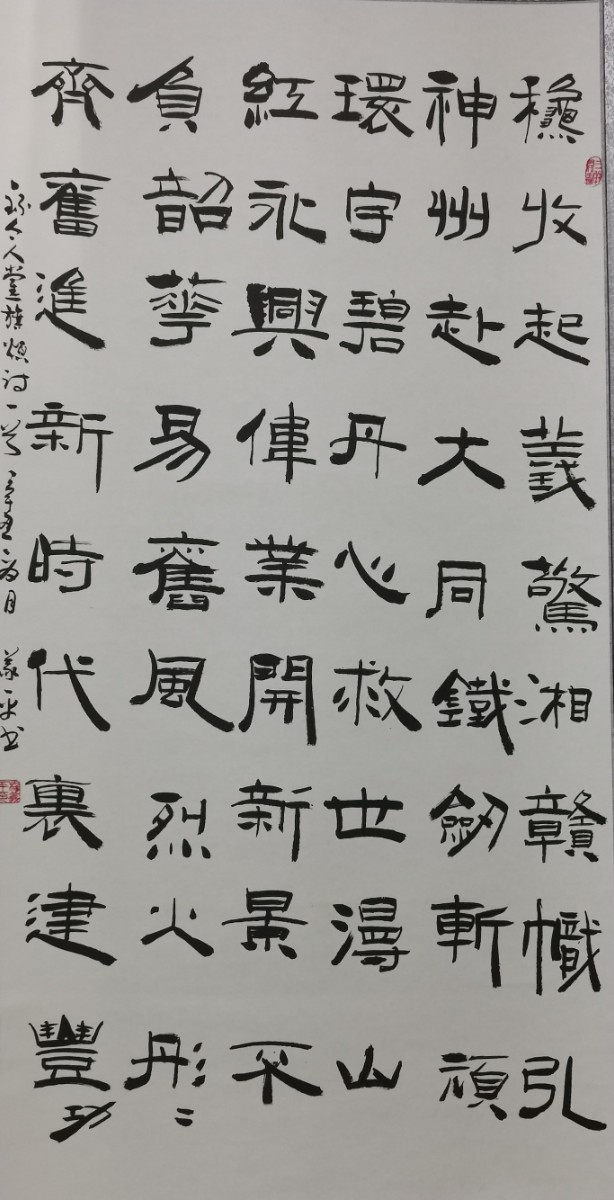 穐收起義驚湘贛幟引
神州赴大同鐵劍斬頑
環宇碧丹心救世漫山
紅永興偉業開新景不
負韶華易舊風烈火彤〻
齊奮進新時代裏建豐功
錄今人黨旗頌詩一首 辛丑 月 書